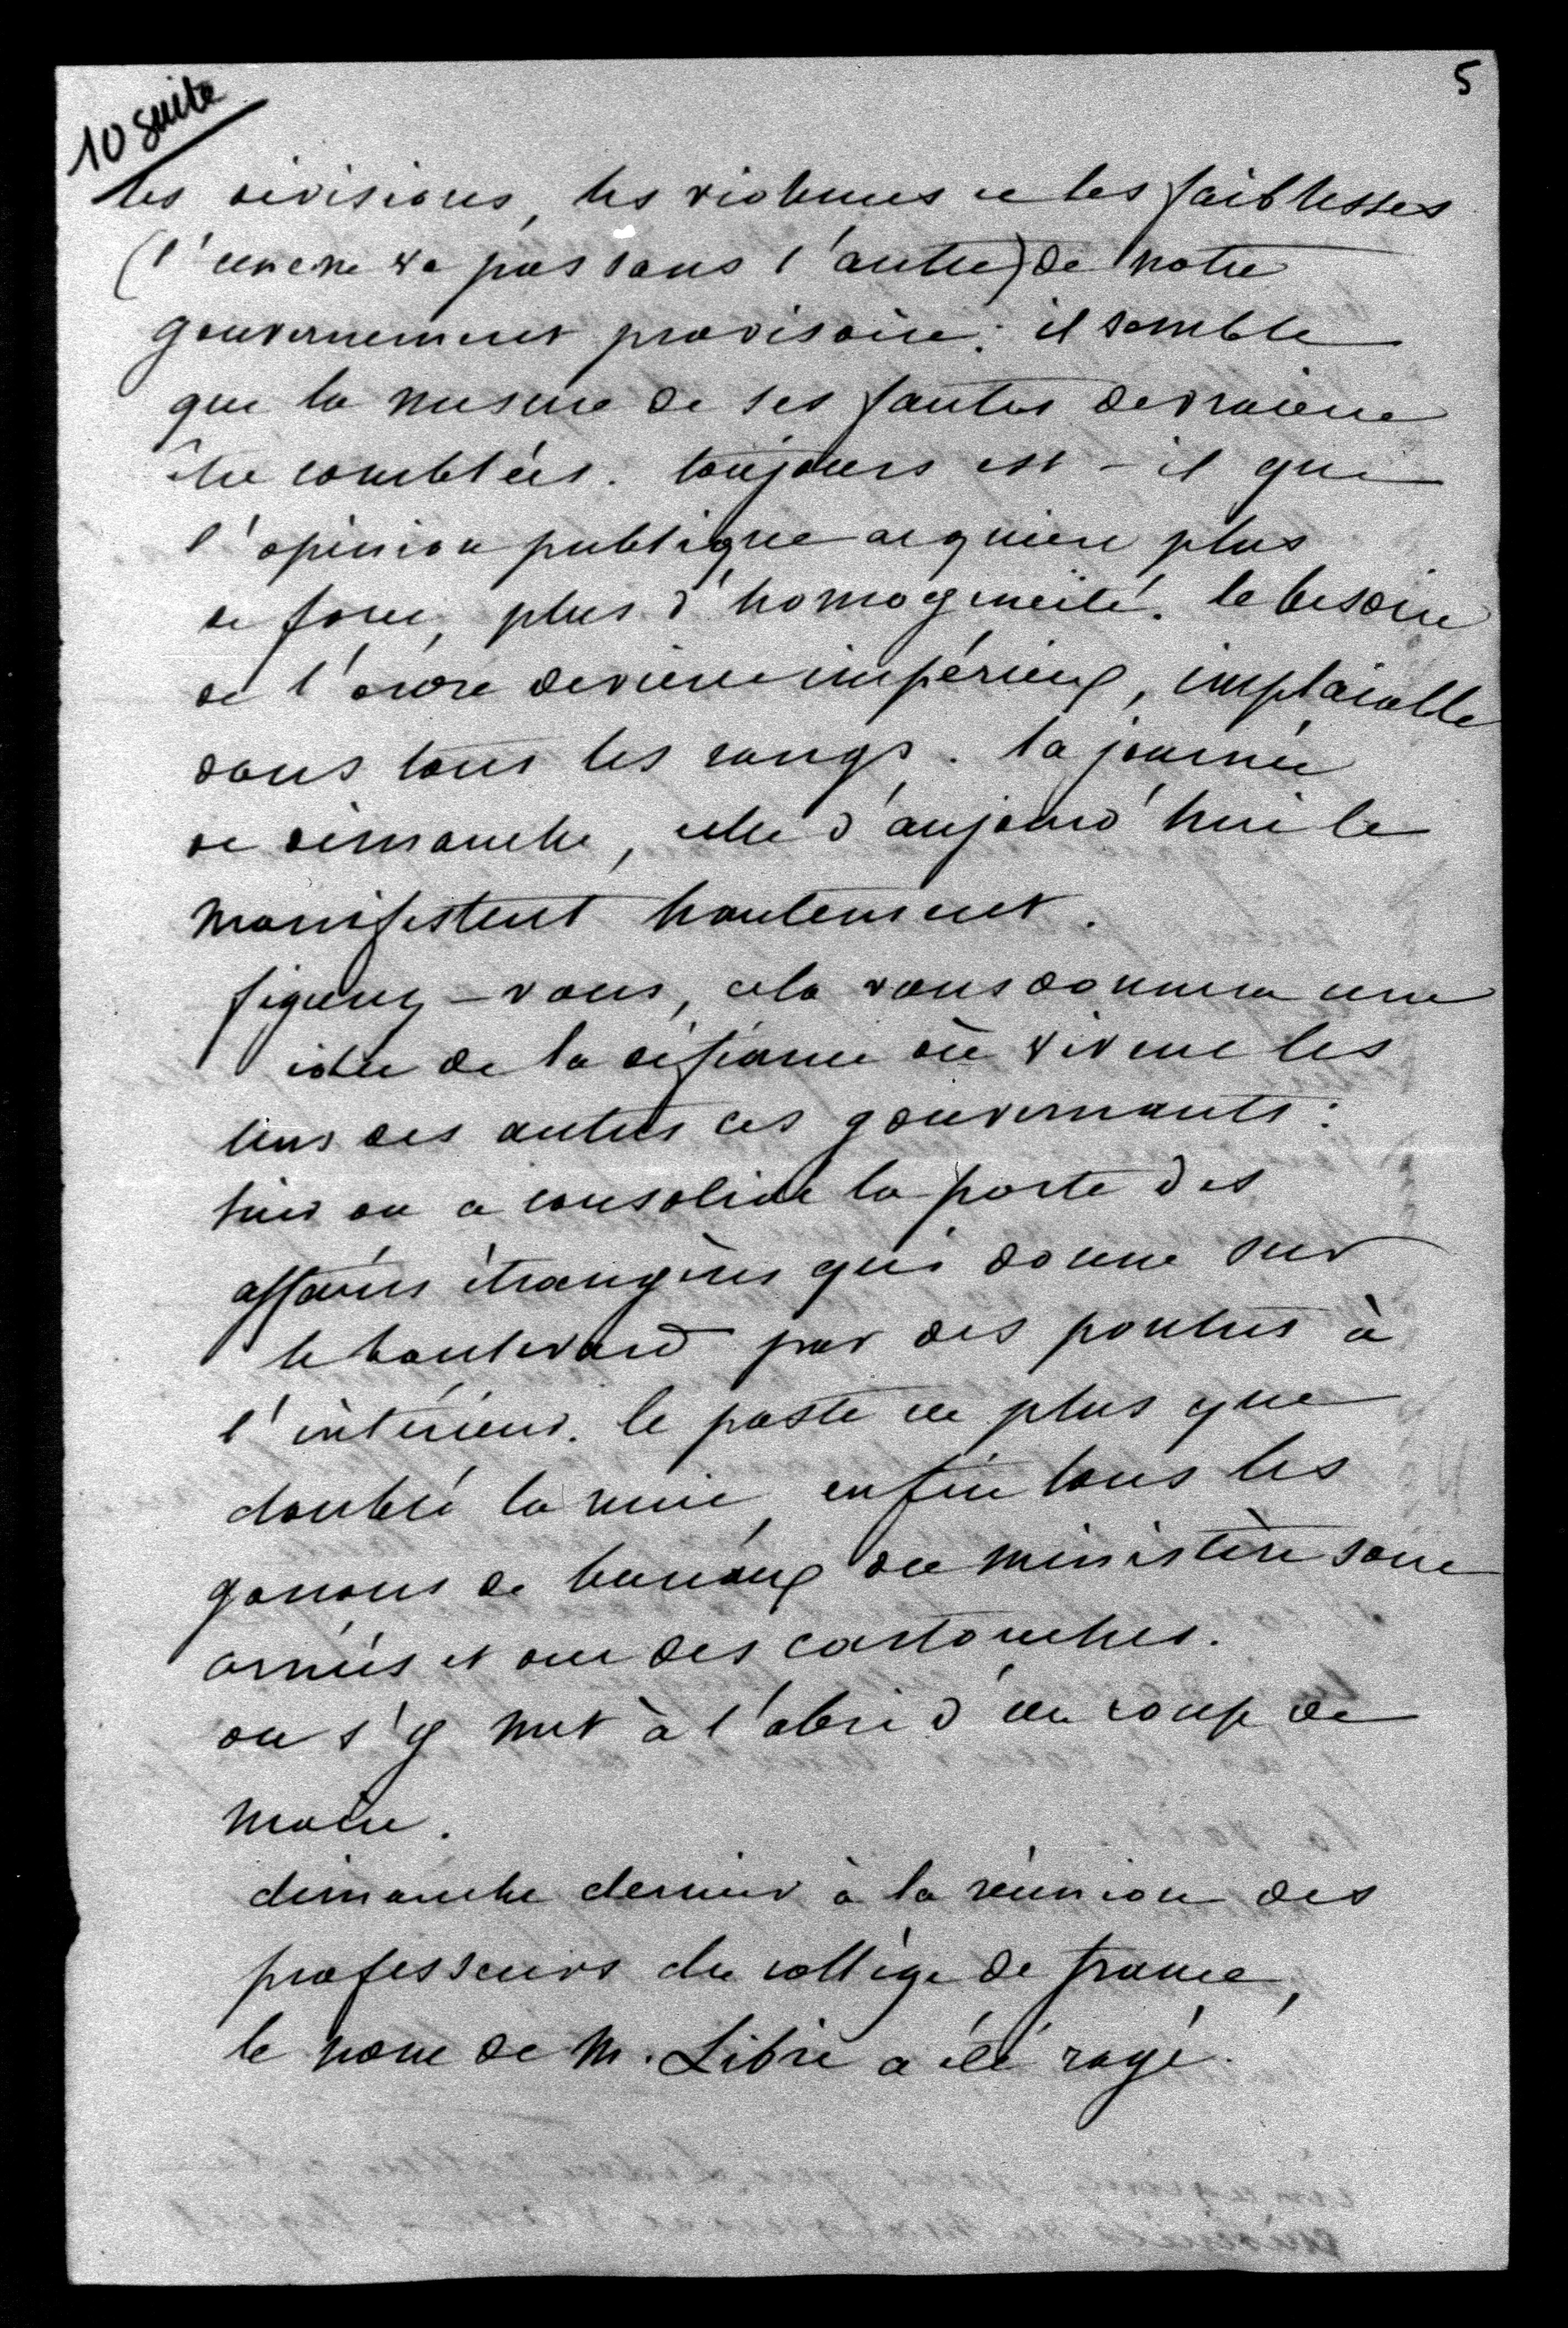 5
10 suite
les divisions, les violences et les faiblesses
(l'un ne va pas sans l'autre) de notre
gouvernement provisoire; il semble
que la mesure de ses fautes devraient
être comblées. toujours est-il que
l'opinion publique acquiert plus
de force, plus d'homogénéité. le besoin
de l'ordre devient impérieux, implacable
dans tous les rangs. la journée
de dimanche, celle d'aujourd'hui le
manifestent hautement.
figurez-vous, cela vous donnera une
idée de la défiance où vivent les
uns des autres ces gouvernants:
hier on a consolidé la porte des
affaires étrangères qui donne sur
le boulevard par des poutres à
l'intérieur. le poste est plus que
doublé la nuit, enfin tous les
garçons de bureaux du ministère sont
armés et ont des cartouches.
on s'y met à l'abri d'un coup de
main.
dimanche dernier à la réunion des
professeurs du collège de france,
le nom de M. Libri a été rayé.